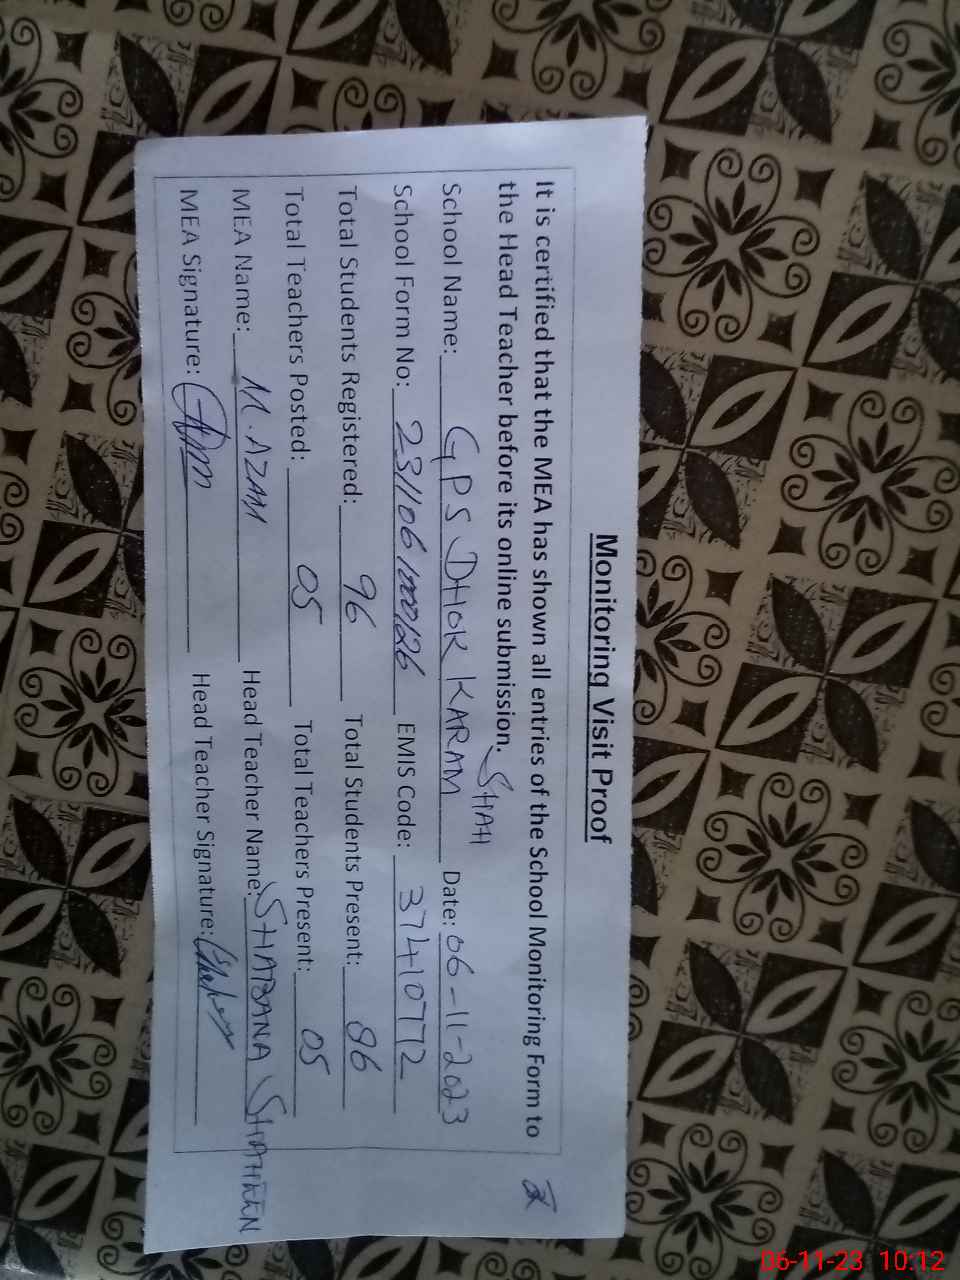 Monitoring Visit Proof
It is certified that the MEA has shown all entries of the School Monitoring Form to
the Head Teacher before its online submission.
School Name: GPS DHOK KARAM SHAH Date: 06-11-2023
School Form No: 231106100126 EMIS Code: 37410772
Total Students Registered: 96 Total Students Present: 86
Total Teachers Posted: 05 Total Teachers Present: 05
MEA Name: M. AZAM Head Teacher Name: SHABANA SHAHEEN
MEA Signature: Head Teacher Signature:
06-11-23 10:12